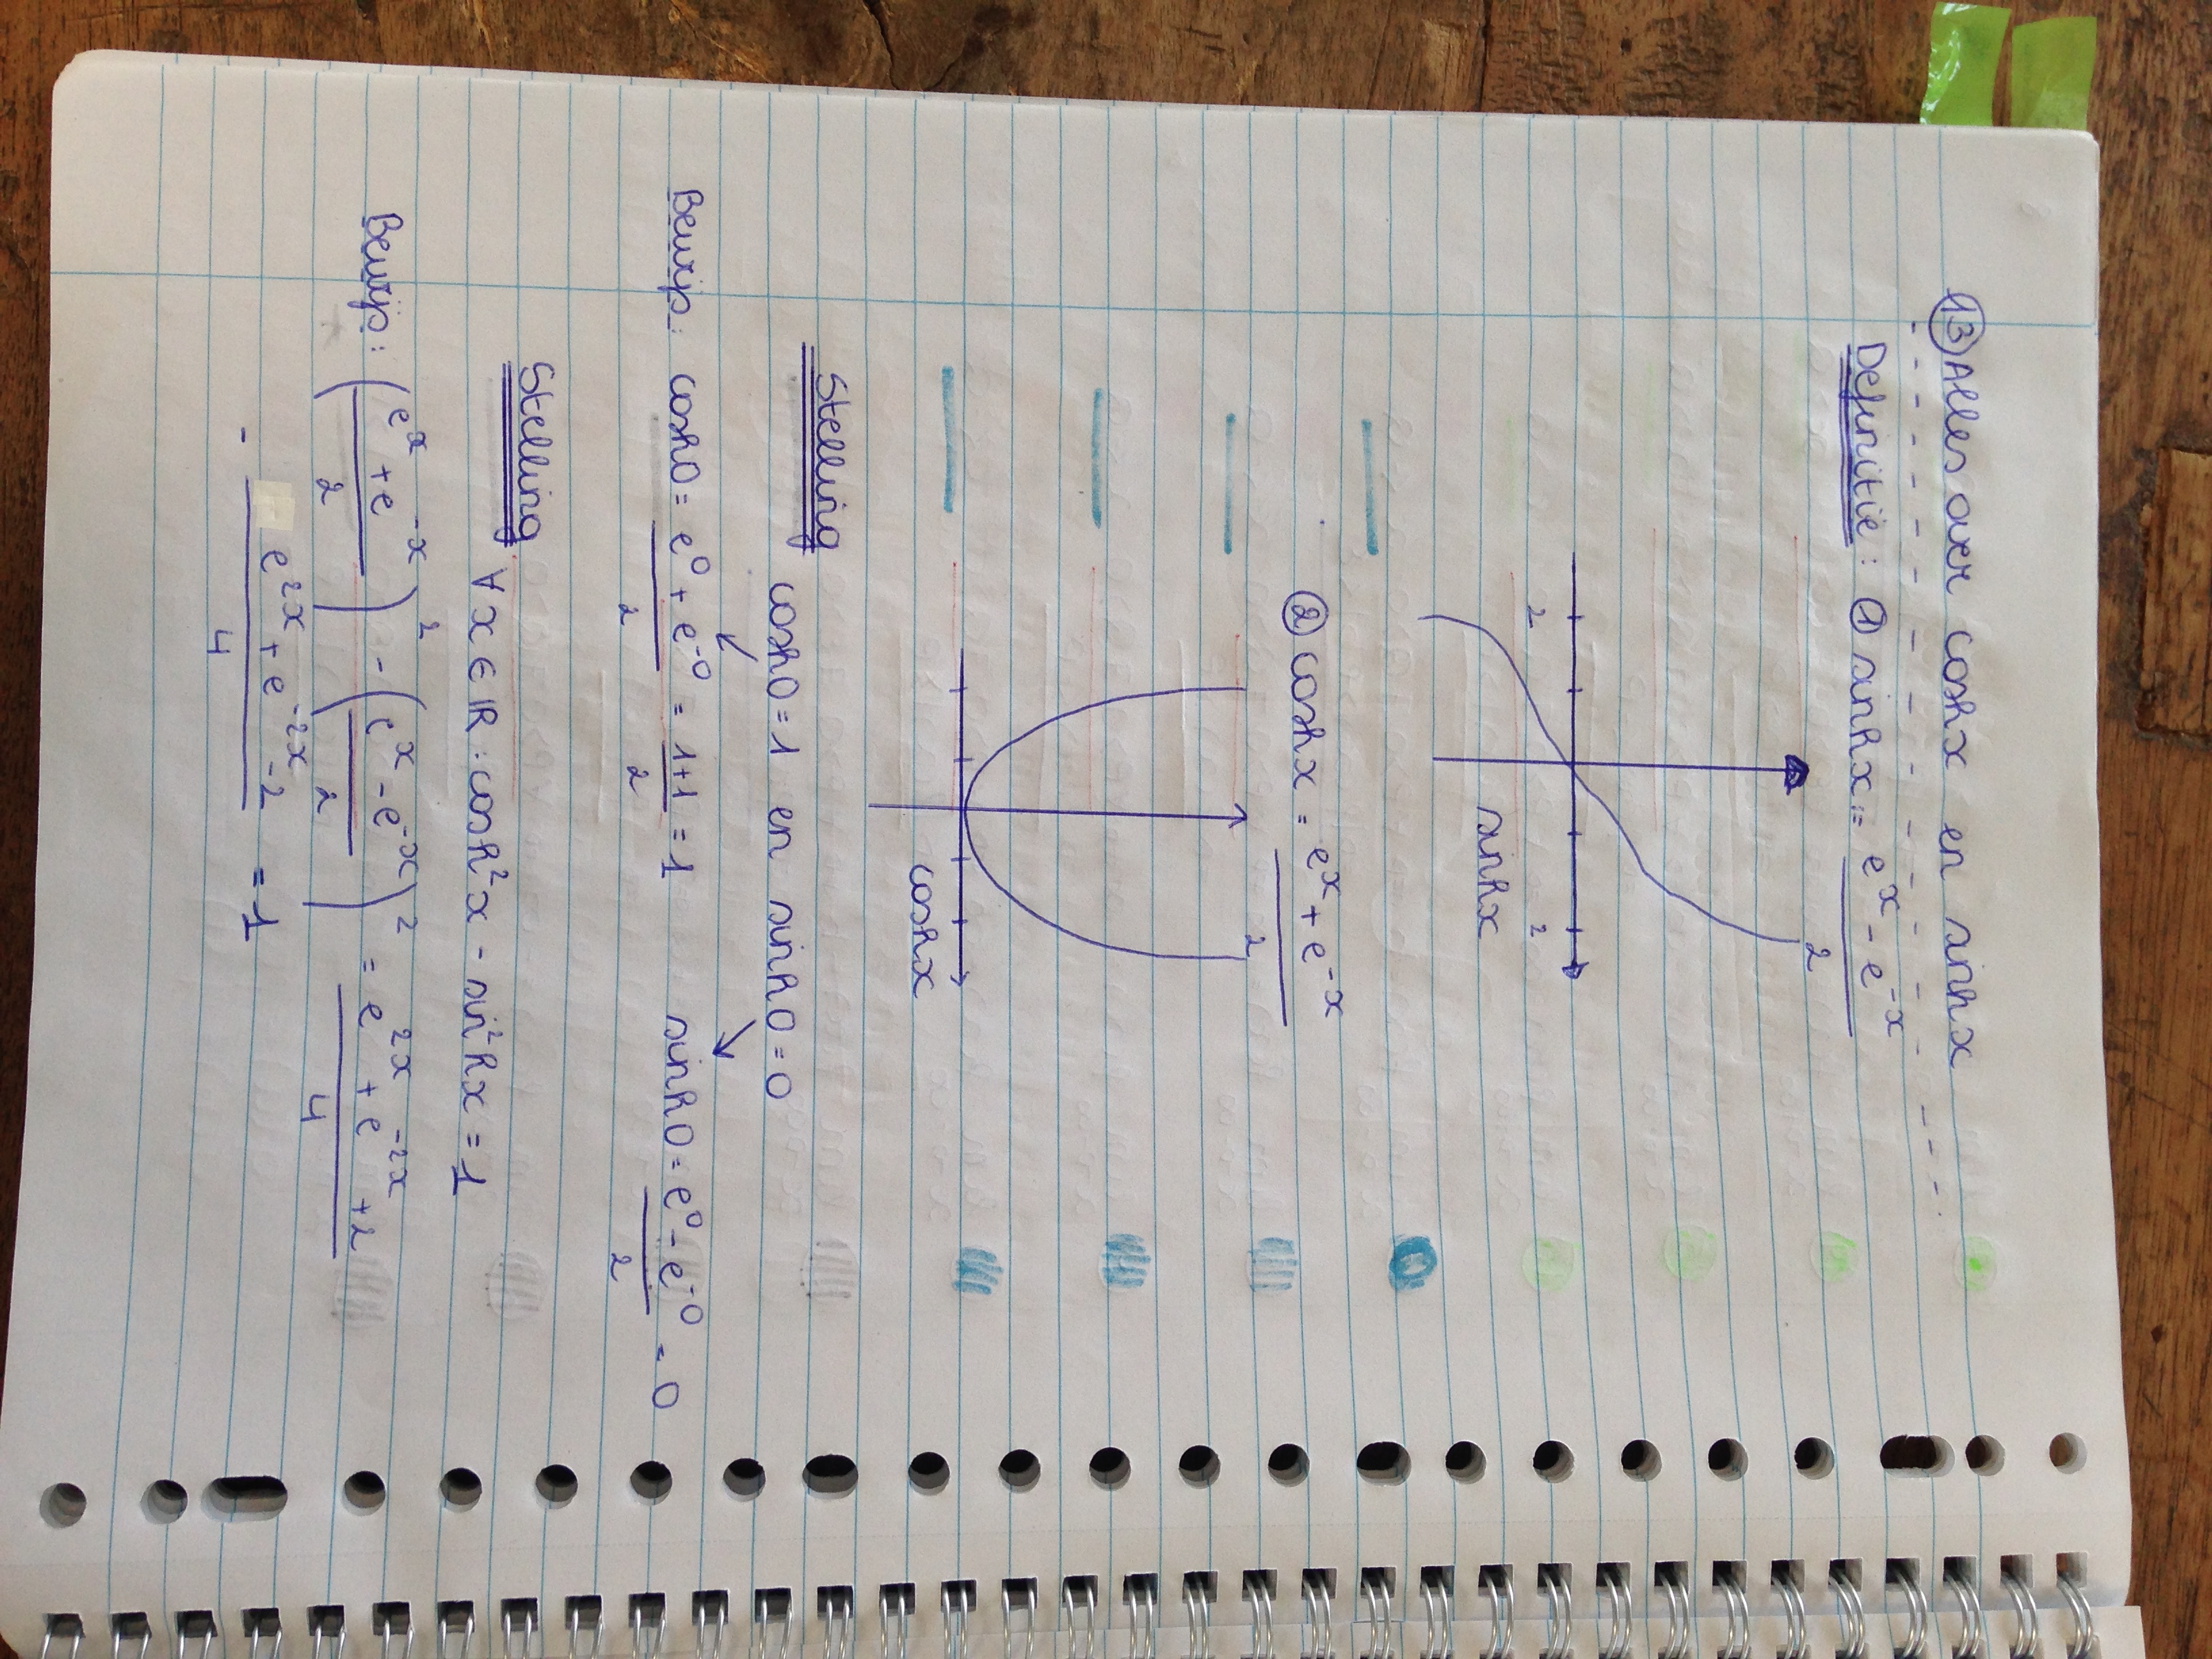 ⑬ Alles over coshx en sinhx
Definitie: ① sinhx := (e^x - e^-x)/2
2 2
sinhx
② coshx = (e^x + e^-x)/2
coshx
Stelling
cosh0 = 1 en sinh0 = 0
↙ ↘
Bewijs: cosh0 = (e^0 + e^-0)/2 = (1+1)/2 = 1 sinh0 = (e^0 - e^-0)/2 = 0
Stelling
∀x ∈ ℝ : cosh²x - sin²hx = 1
Bewijs: ((e^x + e^-x)/2)² - ((e^x - e^-x)/2)² = (e^2x + e^-2x + 2)/4
- (e^2x + e^-2x - 2)/4 = 1